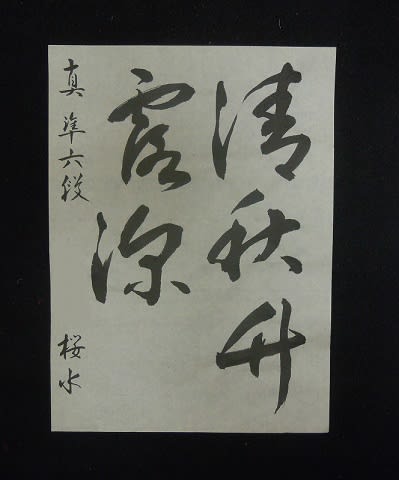 清秋竹
露深
真 準六段 桜水